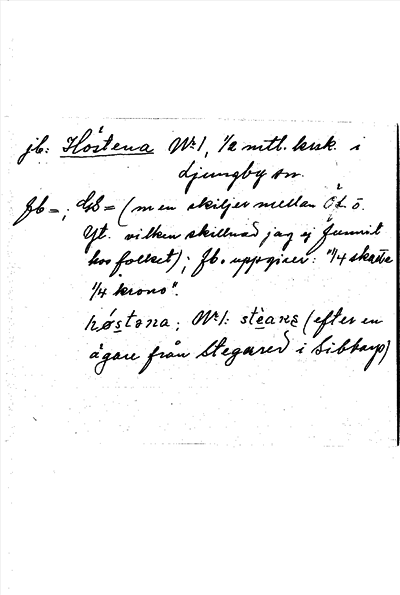 jb: Höstena Nr 1, 1/2 mtl. krsk. i
Ljungby sn.
fb =; GS = (men skiljer mellan Öt. o.
Yt. vilken skillnad jag ej funnit
hos folket); fb. uppgiver: "1/4 skatte
1/4 krono".
høstɘna; Nr 1: stèaɴs (efter en
ägare från Stegared i Sibbarp)